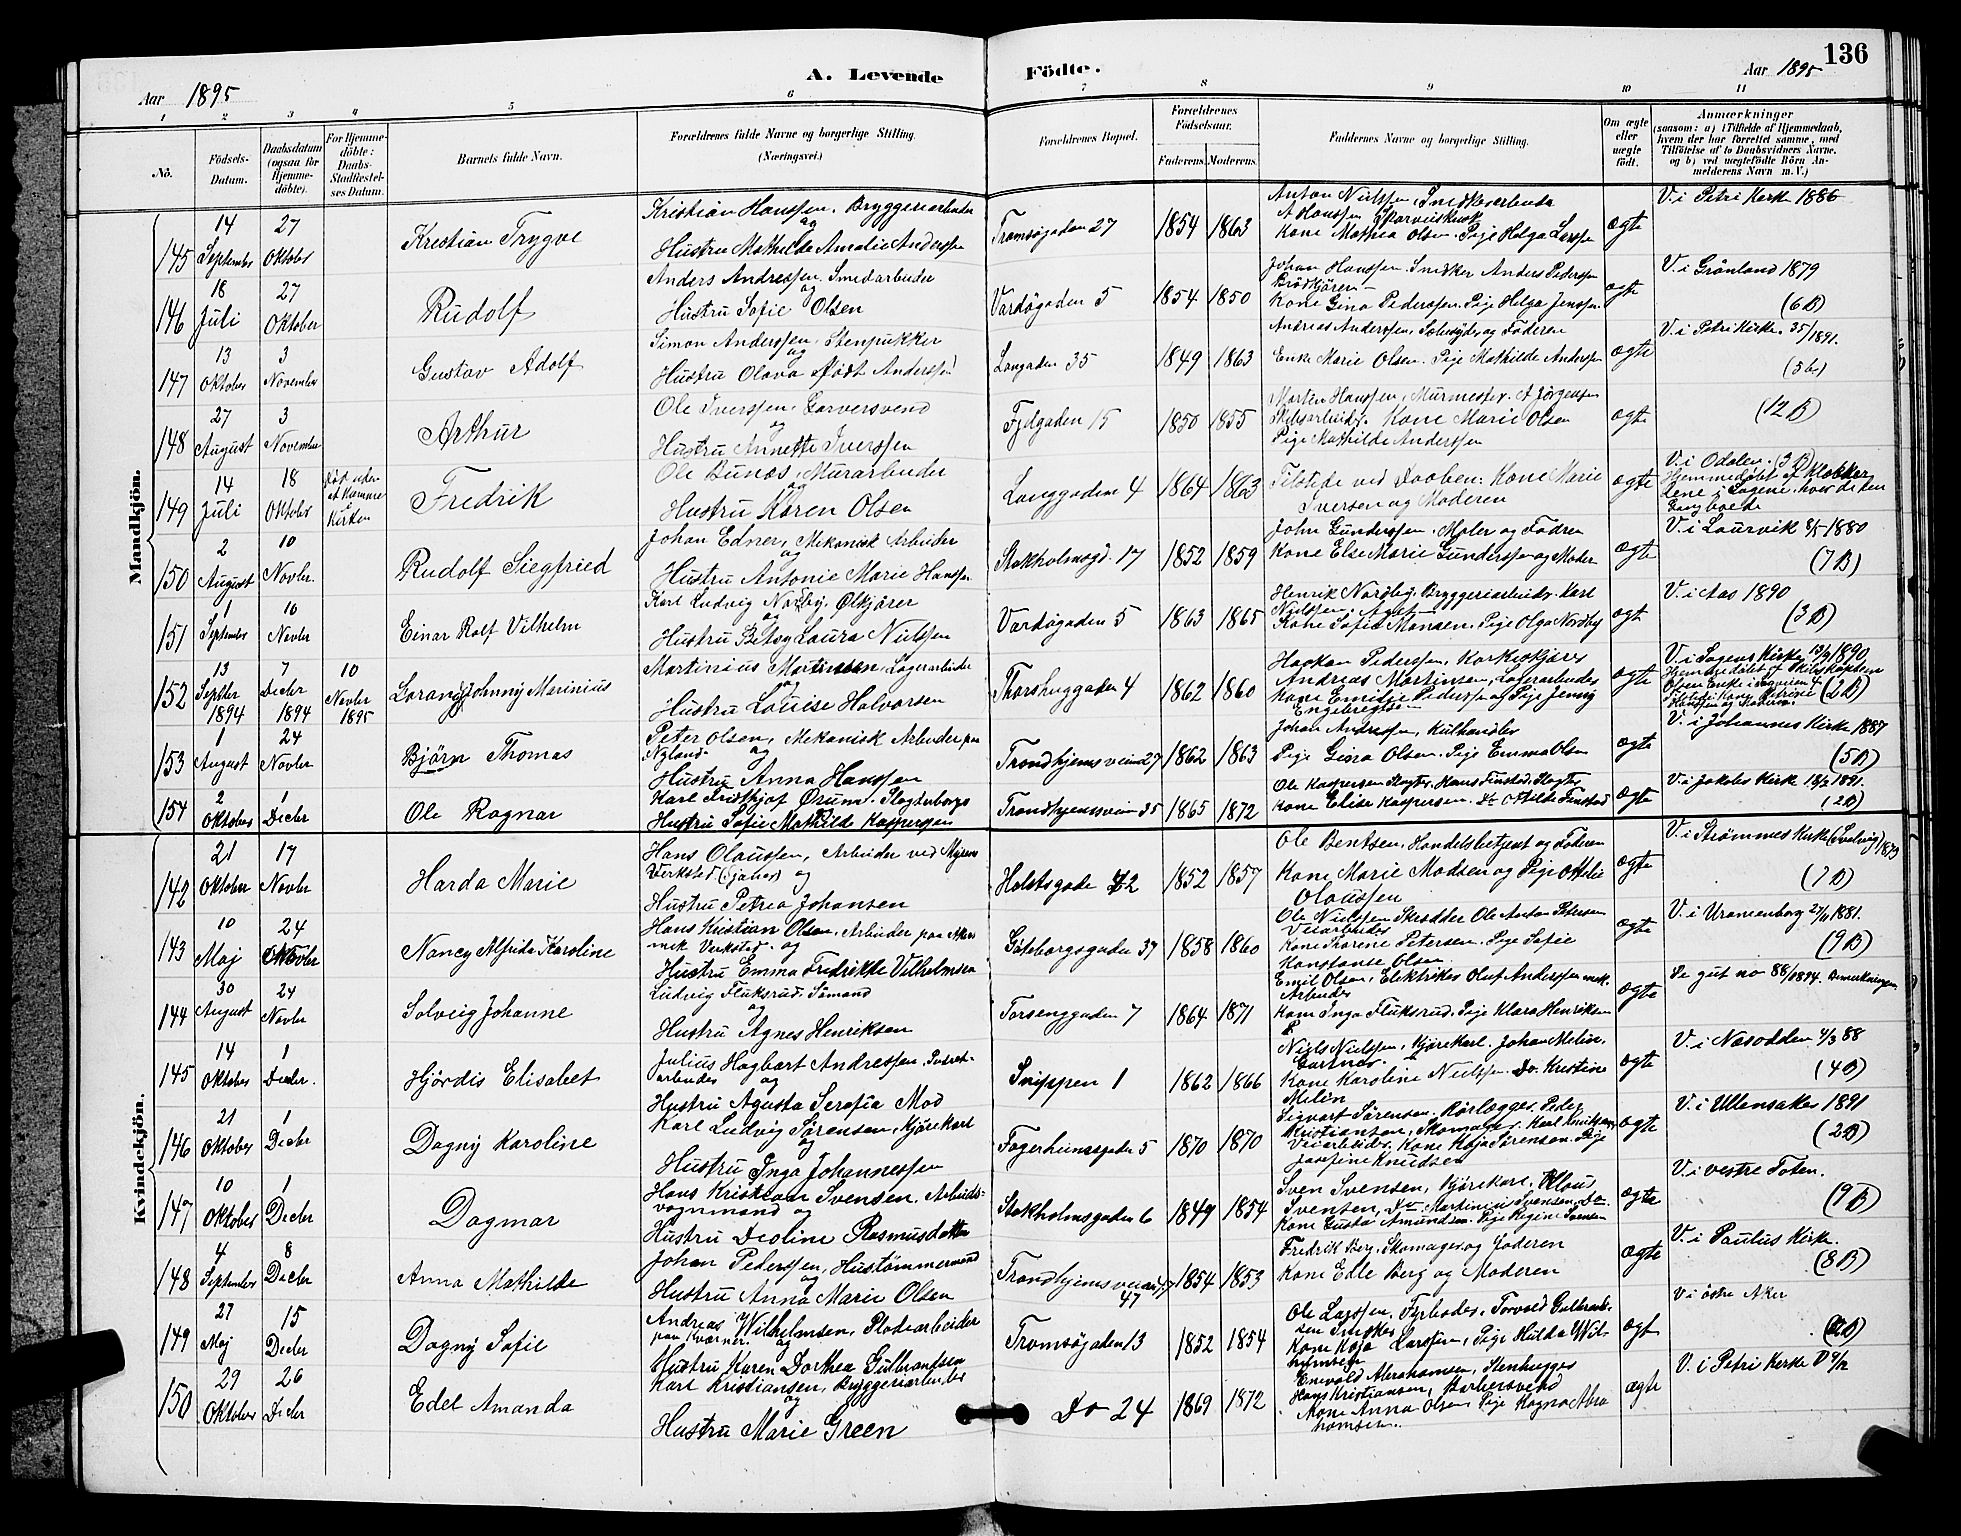 136
A. Levende Födte.
Aar 1895
Aar 1895
1 2 3 4 5 6 7 8 9 10 11
No.
Födsels-Datum.
Daabsdatum (ogsaa for Hjemme-döbte).
For Hjemme-döbte: Daabs-Stadfæstel-ses Datum.
Barnets fulde Navn.
Forældrenes fulde Navne og borgerlige Stilling. (Næringsvei.)
Forældrenes Bopæl.
Forældrenes Födselsaar.
Faderens. Moderens.
Faddernes Navne og borgerlige Stilling.
Om ægte eller uægte födt.
Anmærkninger
(saasom: a) i Tilfælde af Hjemmedaab, hvem der har forrettet samme, med Tilföielse af to Daabsvidners Navne, og b) ved uægtefödte Börn An-melderens Navn m. V.)
Mandkjön.
145 14 September 27 Oktober Kristian Trygve
Kristian Hanssen, Bryggeriarbeider
og
Hustru Mathilde Amalie Anderssen
Tromsögaden 27 1854 1863
Anton Nielssen, Snedkerarbeider
A Hanssen
Kone Mathea Olsen. Pige Helga Larssen
ægte V. i Petri Kirke 1886
146 18 Juli 27 Oktober Rudolf
Anders Andreassen, Smedarbeider
og
Hustru Sofie Olsen
Vardögaden 5 1854 1850
Johan Hanssen, Snedker Anders Pederssen
Brödkjörer
Kone Gina Pederssen. Pige Helga Jenssen
ægte V. i Grönland 1879
(6 B)
147 13 Oktober 3 November Gustav Adolf
Simon Anderssen, Stenpukker
og
Hustru Olava födt Anderssen
Langaden 35 1849 1863
Andreas Anderssen, Sæbesyder og Faderen
Enke Marie Olsen. Pige Mathilde Anderssen
ægte V. i Petri Kirke 35/1891.
(5 b)
148 27 August 3 November Arthur
Ole Iverssen, Garversvend
og
Hustru Annette Iverssen
Fjelgaden 15 1850 1855
Morten Hanssen, Murmester. A Jörgenssen
Kone Marie Olsen
Pige Mathilde Anderssen
ægte (12 B)
149 14 Juli 18 Oktober Fredrik
Ole Bunæs, Murarbeider
og
Hustru Karen Olsen
Langgaden 4 1864 1863
Tilstede ved Daaben: Kone Marie
Iversen og Moderen
ægte V. i Odalen. (3 B)
Hjemmedöbt af Klokker
150 2 August 10 Novbr. Rudolf Siegfried
Johan Edner, Mekanisk Arbeider
og
Hustru Antonie Marie Hanssen
Stokholmsgd. 17 1852 1859
John Gunderssen, Maler og Fadren
Kone Else Marie Gunderssen og Moder
ægte V. i Laurvik 8/5 1880
(7 B)
151 1 September 10 Novbr Einar Rolf Vilhelm
Karl Ludvig Nordby, Ølkjörer
og
Hustru Betsy Laura Nielssen
Vardögaden 5 1863 1865
Henrik Nordby, Bryggeriarbeider. Karl
Nielssen, Agent
Kone Sofie Monsen, Pige Olga Nordby
ægt V. i Aas 1890
(3 B)
152 13 Septbr 1894 7 Decbr 1894 10 Novbr 1895 Johnny Marinius
Martinius Martinsen, Lagerarbeider
og
Hustru Louise Halvorsen
Thorshuggaden 4 1862 1860
Haakon Pederssen, Korkskjærer
Andreas Martinsen, Lagerarbeider
Kone Emilie Pederssen og Pige Jenny
Engebregtsen
ægte V. i Sagens Kirke 13/9 1890
(2 B)
153 1 August 24 Novbr Björn Thomas
Peter Olsen, Mekanisk Arbeider paa
Nyland og
Hustru Anna Hanssen
Trondhjemsveien 27 1862 1863
Johan Anderssen, Kulhandler
Pige Gina Olsen. Pige Emma Olsen
ægte V. i Johannes Kirke 1887
(5 B)
154 2 Oktober 1 Decbr Ole Ragnar
Karl Fridthjof Ørum
Hustru Sofie Mathilde Kaspersen
Trondhjemsveien 35 1865 1872
Ole Kaspersen Slagter, Hans Finstad, Slagter
Kone Elise Kaspersen. Do Otilde Finstad
ægte V. i Jakobs Kirke 1891.
(2 B)
Kvindekjön.
142 21 Oktober 17 Novbr Harda Marie
Hans Olaussen, Arbeider ved Myrens
Verksted og
Hustru Petrea Johansen
Holstsgade 1852 1857
Ole Bentsen, Handelsbetjent og Faderen
Kone Marie Madsen og Pige Ottilie
Olaussen
ægte V. i Strömmens Kirke (Svelvig) 1879
(7 B)
143 10 Maj 24 Novbr Nancy Alfrida Karoline
Hans Kristian Olsen, Arbeider paa Akers
mek Verksted og
Hustru Emma Fredrikke Vilhelmsen
Göteborgsgaden 37 1858 1860
Ole Nielssen Skrædder Ole Anton Petersen
Veiarbeider
Kone Karene Petersen. Pige Sofie
Konstanse Olsen
ægte V. i Uranienborg 1881.
(9 B)
144 30 August 24 Novbr Solveig Johanne
Ludvig Fluksrud, Sömand
og
Hustru Agnes Henriksen
Torsenggaden 7 1864 1871
Emil Olsen, Elektriker Oluf Anderssen mek.
Arbeider
Kone Inga Fluksrud. Pige Klara Henriksen
ægte Se gut no 88/1894. Anmerkningen
145 14 Oktober 1 Decbr. Hjördis Elisabet
Julius Hagbart Andressen
arbeider og
Hustru Agusta Serafia Moe
Snippen 1 1862 1866
Niels Nielssen, Kjörekarl. Johan Melin,
Gartner.
Kone Karoline Nielssen. Do. Kristine
Melin
ægte V. i Næsodden 4/3 88
(4 B)
146 21 Oktober 1 Decbr Dagny Karoline
Karl Ludvig Sörensen, Kjörekarl
og
Hustru Inga Johannessen
Fagerheimsgaden 5 1870 1870
Sigvart Sörensen, Rörlægger, Peder
Kristiansen, Skomager. Karl Knudsen,
Veiarbeider. Kone Kaja Sörensen. Pige
Josefine Knudsen
ægte V. i Ullensaker 1891
(2 B)
147 10 Oktober 1 Decbr Dagmar
Hans Kristian Svensen, Arbeids-
vognmand og
Hustru Deoline Rasmusdatter
Stokholmsgaden 6 1849 1854
Sven Svensen, Kjörekarl. Klaus
Svensen, Do Martinius Svensen. Do
Kone Gusta Amundsen. Pige Regine Svensen
ægte V. i vestre Toten.
(9 B)
148 4 September 8 Decbr Anna Mathilde
Johan Pederssen, Hustömmermand
og
Hustru Anna Marie Olsen
Trondhjemsveien 47 1854 1853
Fredrik Berg, Skomager og Faderen
Kone Edle Berg og Moderen
ægte V. i Paulus Kirke.
(8 B)
149 27 Maj 15 Decbr Dagny Sofie
Andreas Wilhelmsen, Pladsarbeider
paa Kværner og
Hustru Karen Dorthea Gulbrandsen
Tromsögaden 13 1852 1854
Ole Larssen, Fyrböder, Torvald Gulbrand-
sen Snedker
Kone Kaja Larssen, Pige Hilda Wil-
helmsen
ægt V i östre Aker
150 29 Oktober 26 Decbr Edel Amanda
Karl Kristiansen, Bryggeriarbeider
og
Hustru Marie Green
Do 24 1869 1872
Enevald Abrahamsen, Stenhugger
Hans Kristiansen, Barbersvend
Kone Anna Olsen, Pige Ragna Abra
hamsen.
ægte V. i Petri Kirke